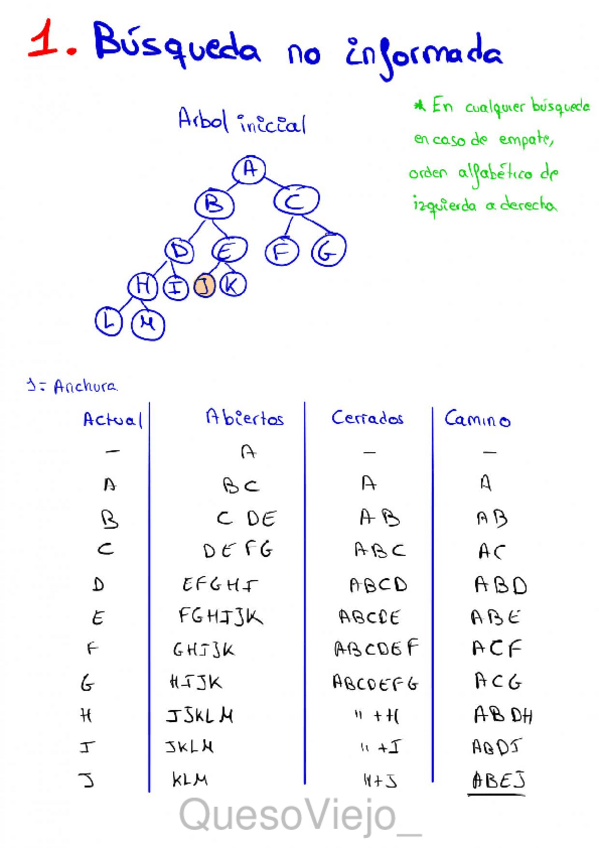 1. Búsqueda no informada
* En cualquier búsqueda
en caso de empate,
orden alfabético de
izquierda a derecha
Arbol inicial
A
B C
D E F G
H I J K
L M
1= Anchura
Actual Abiertos Cerrados Camino
— A — —
A B C A A
B C D E A B A B
C D E F G A B C A C
D E F G H I A B C D A B D
E F G H I J K A B C D E A B E
F G H I J K A B C D E F A C F
G H I J K A B C D E F G A C G
H I J K L M " + H A B D H
I J K L M " + I A B D I
J K L M " + J A B E J
QuesoViejo_